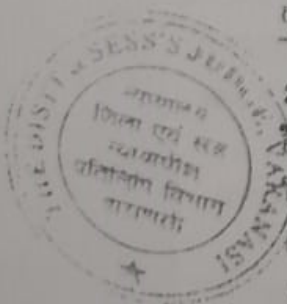 THE DISTT & SESS'S JUDGE, VARANASI
न्यायालय
जिला एवं सत्र
न्यायाधीश
प्रतिलिपि विभाग
वाराणसी